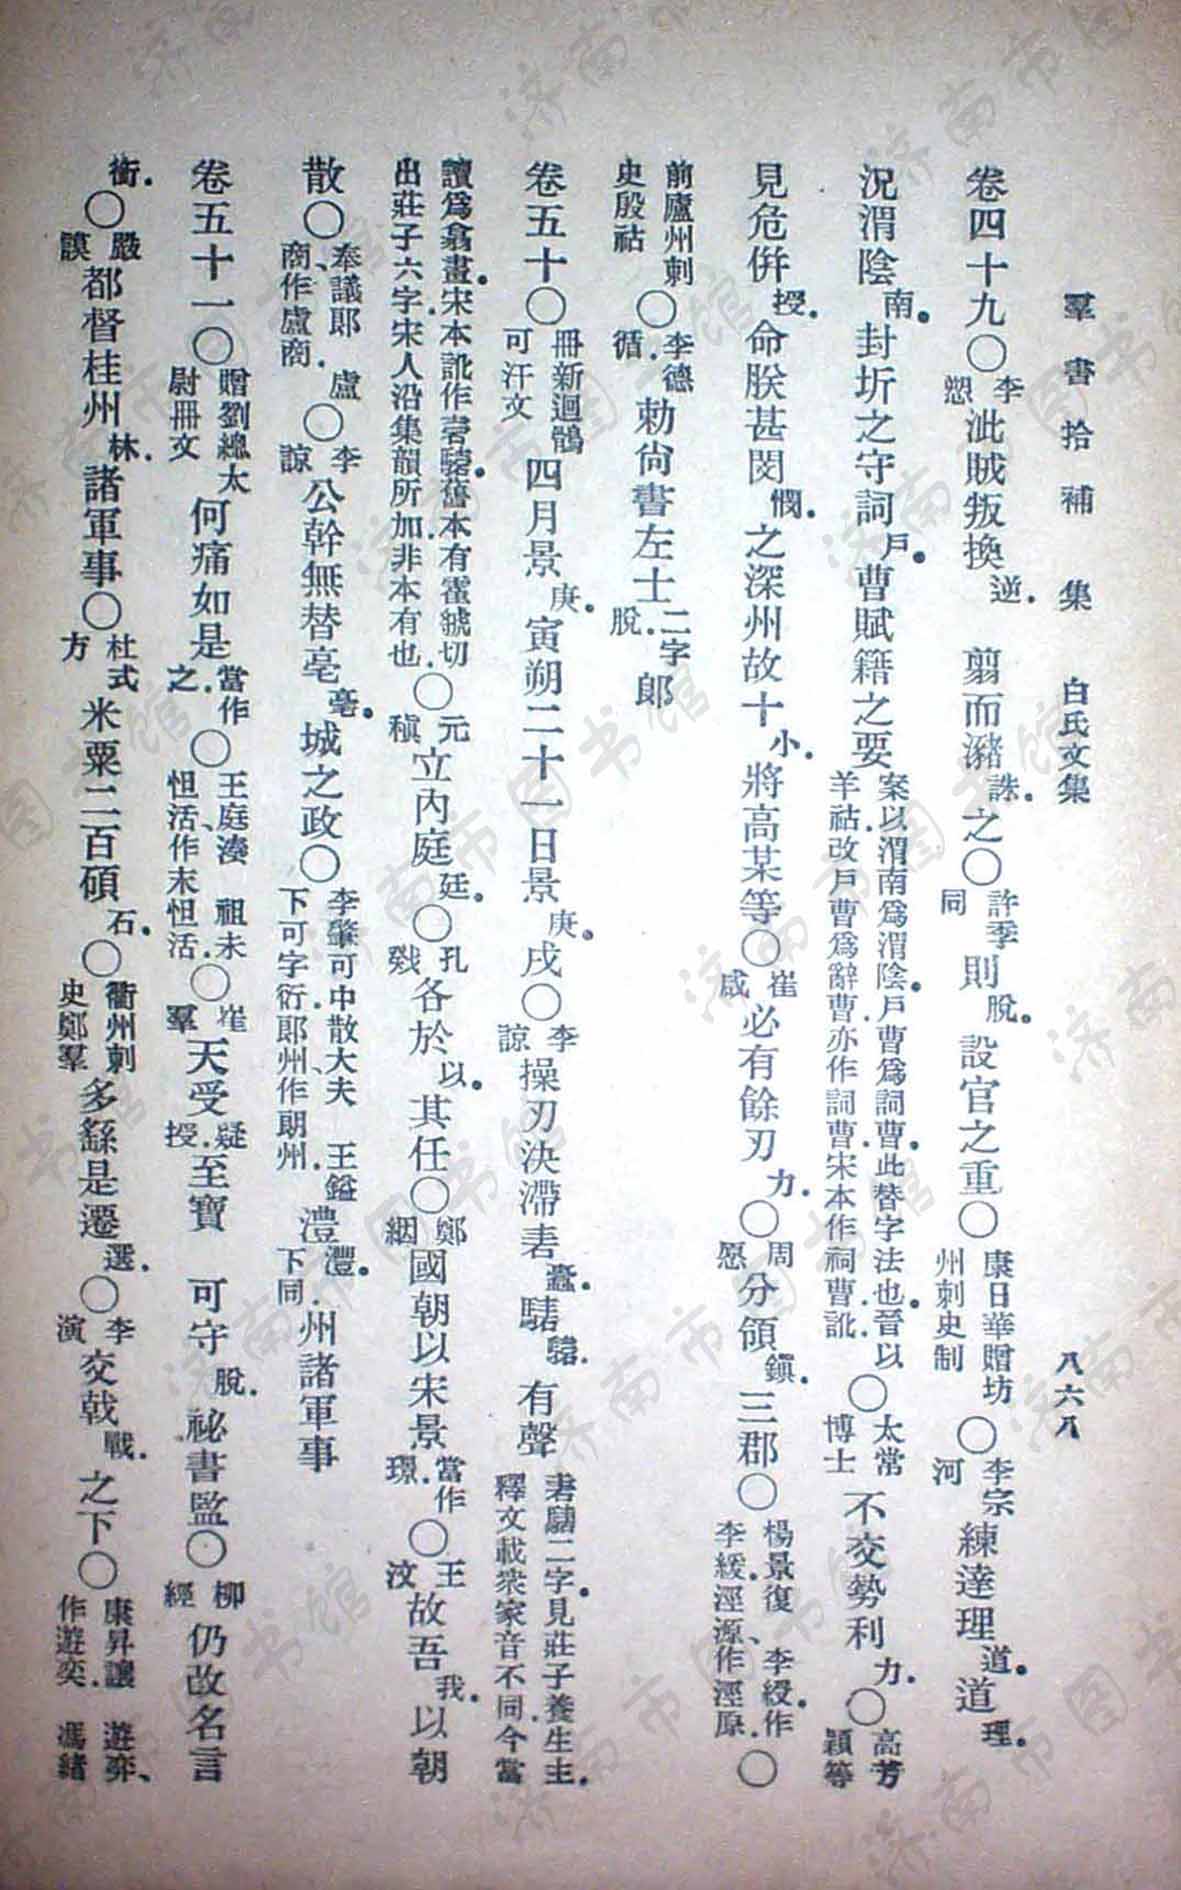 羣書拾補集　白氏文集　八六八
卷四十九○李愬泚賊叛換逆．翦而瀦誅．之○許季同則脫．設官之重○康日華贈坊州刺史制○李宗河練達理道．道理．
況渭陰南．封圻之守詞戶．曹賦籍之要案以渭南爲渭陰．戶曹爲詞曹．此替字法也．晉以羊祜改戶曹爲辭曹．亦作詞曹．宋本作祠曹．訛．○太常博士不交勢利力．○高芳穎等
見危併授．命朕甚閔憫．之深州故十小．將高某等○崔咸必有餘刃力．○周愿分領鎮．三郡○楊景復李緩．涇源、李綬．作作涇原．○
前廬州刺史殷祜○李德循．勅尙書左士二字脫．郞
卷五十○冊新迴鶻可汗文四月景庚．寅朔二十一日景庚．戌○李諒操刃決滯砉蠚．騞驍．有聲砉騞二字．見莊子養生主．釋文載衆家音不同．今當
讀爲翕畫．宋本訛作砉驍．舊本有霍虢切出莊子六字．宋人沿集韻所加．非本有也．○元稹立內庭廷．○孔戣各於以．其任○鄭絪國朝以宋景當作璟．○王汶故吾我．以朝
散○奉議郞盧商、作盧商．○李諒公幹無替亳毫．城之政○李肇可中散大夫下可字衍．郞州、作朗州．王鎰澧灃．下同．州諸軍事
卷五十一○贈劉總太尉冊文何痛如是當作之．○王庭湊祖未怛活、作末怛活．○崔羣天受疑授．至寶可守脫．祕書監○柳經仍改名言
衔．○嚴謨都督桂州林．諸軍事○杜式方米粟二百碩石．○衢州刺史鄭羣多繇是遷選．○李演交戟戰．之下○康昇讓遊弈、作遊奕．馮緒